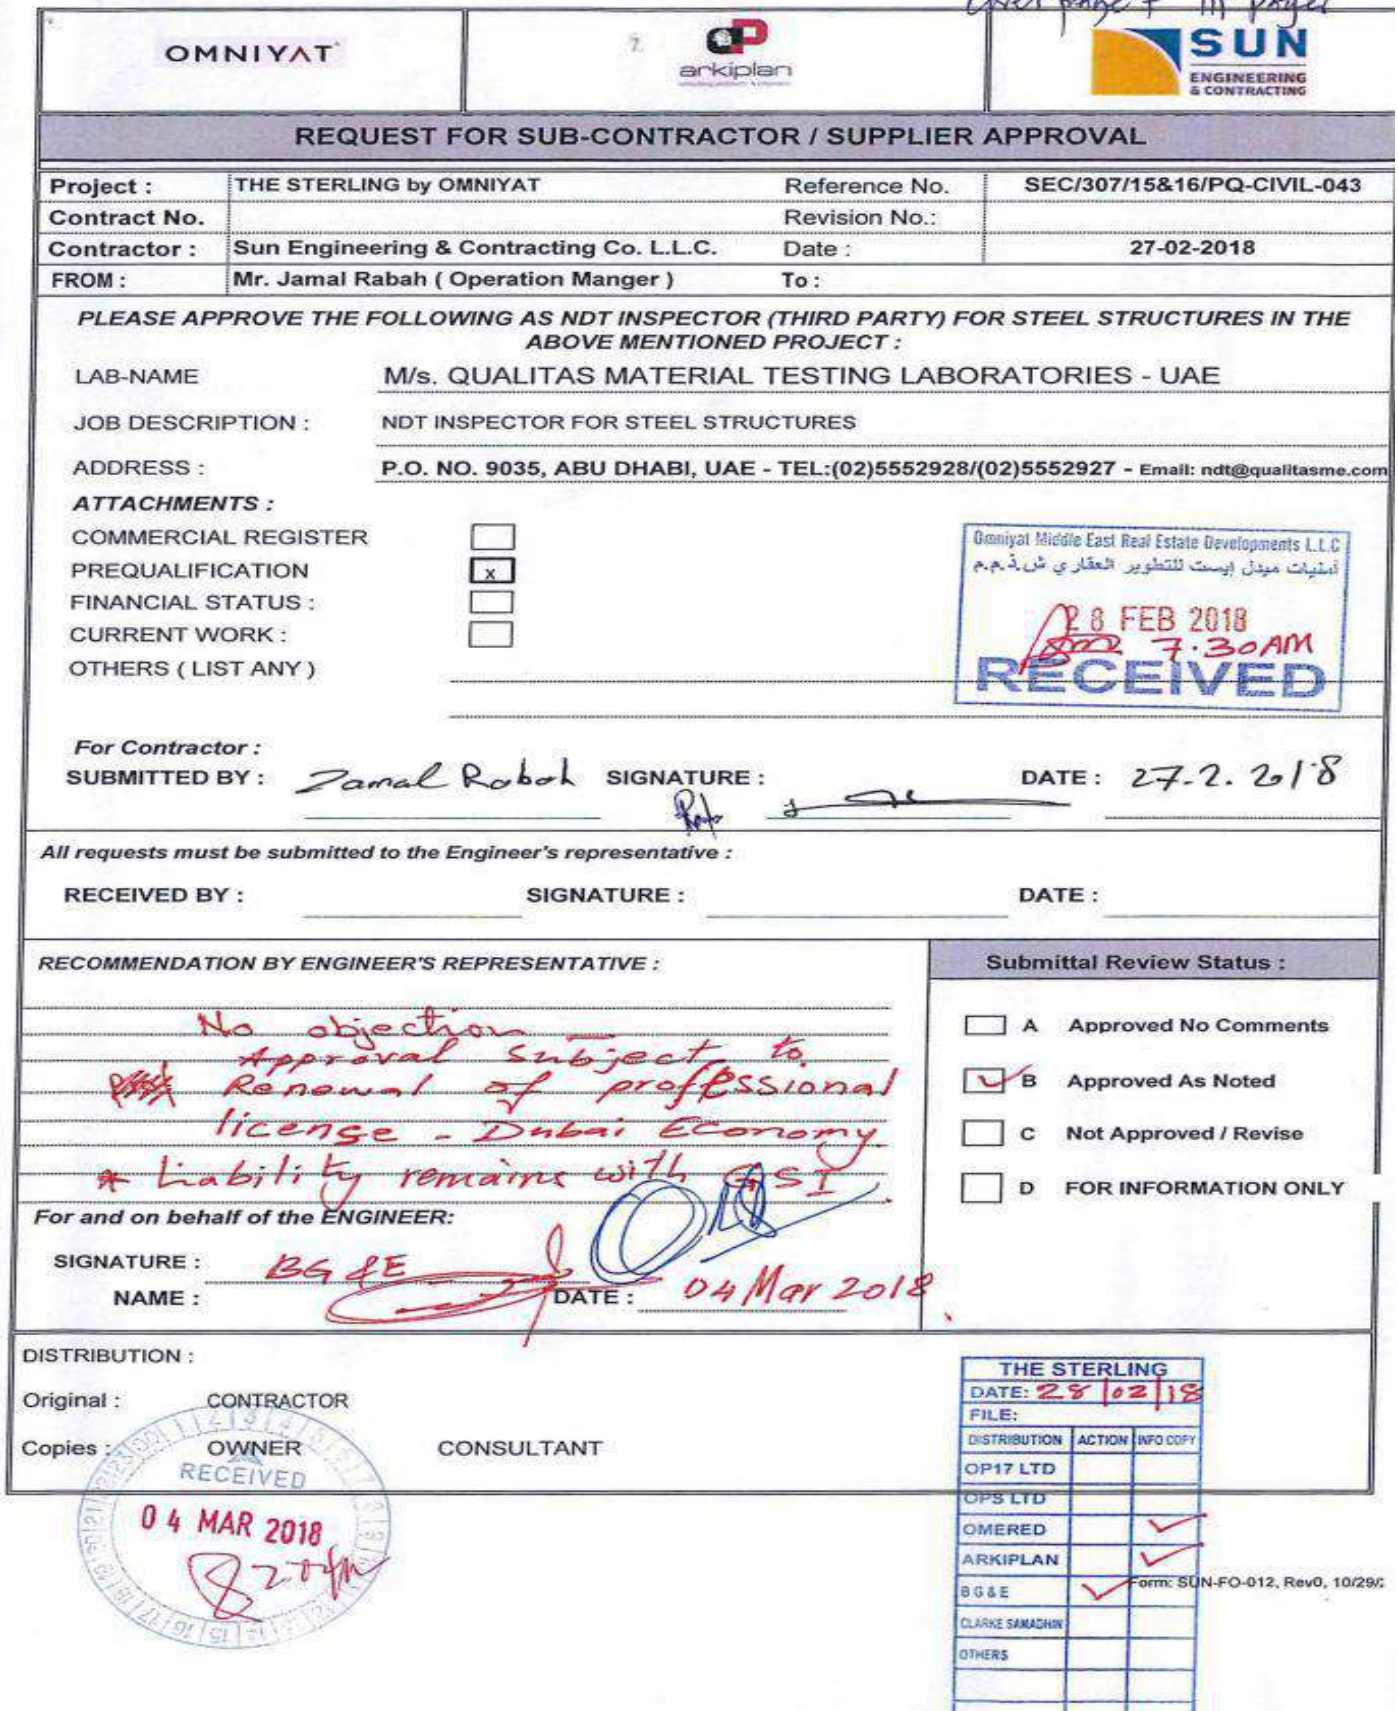 cover page + 111 pages
OMNIYAT
arkiplan
SUN
ENGINEERING
& CONTRACTING
REQUEST FOR SUB-CONTRACTOR / SUPPLIER APPROVAL
Project : THE STERLING by OMNIYAT Reference No. SEC/307/15&16/PQ-CIVIL-043
Contract No. Revision No.:
Contractor : Sun Engineering & Contracting Co. L.L.C. Date : 27-02-2018
FROM : Mr. Jamal Rabah ( Operation Manger ) To :
PLEASE APPROVE THE FOLLOWING AS NDT INSPECTOR (THIRD PARTY) FOR STEEL STRUCTURES IN THE
ABOVE MENTIONED PROJECT :
LAB-NAME M/s. QUALITAS MATERIAL TESTING LABORATORIES - UAE
JOB DESCRIPTION : NDT INSPECTOR FOR STEEL STRUCTURES
ADDRESS : P.O. NO. 9035, ABU DHABI, UAE - TEL:(02)5552928/(02)5552927 - Email: ndt@qualitasme.com
ATTACHMENTS :
COMMERCIAL REGISTER
PREQUALIFICATION x
FINANCIAL STATUS :
CURRENT WORK :
OTHERS ( LIST ANY )
Omniyat Middle East Real Estate Developments L.L.C
أمنيات ميدل إيست للتطوير العقاري ش.ذ.م.م
28 FEB 2018
7.30AM
RECEIVED
For Contractor :
SUBMITTED BY : Jamal Rabah SIGNATURE : DATE : 27.2.2018
All requests must be submitted to the Engineer's representative :
RECEIVED BY : SIGNATURE : DATE :
RECOMMENDATION BY ENGINEER'S REPRESENTATIVE :
No objection
Approval subject to
Renewal of professional
license - Dubai Economy.
* Liability remains with GSI
For and on behalf of the ENGINEER:
SIGNATURE : BG &E
NAME : DATE : 04 Mar 2018
Submittal Review Status :
A Approved No Comments
B Approved As Noted
C Not Approved / Revise
D FOR INFORMATION ONLY
DISTRIBUTION :
Original : CONTRACTOR
Copies : OWNER CONSULTANT
RECEIVED
04 MAR 2018
THE STERLING
DATE: 28/02/18
FILE:
DISTRIBUTION ACTION INFO COPY
OP17 LTD
OPS LTD
OMERED
ARKIPLAN
BG&E
CLARKE SAMADHIN
OTHERS
Form: SUN-FO-012, Rev0, 10/29/